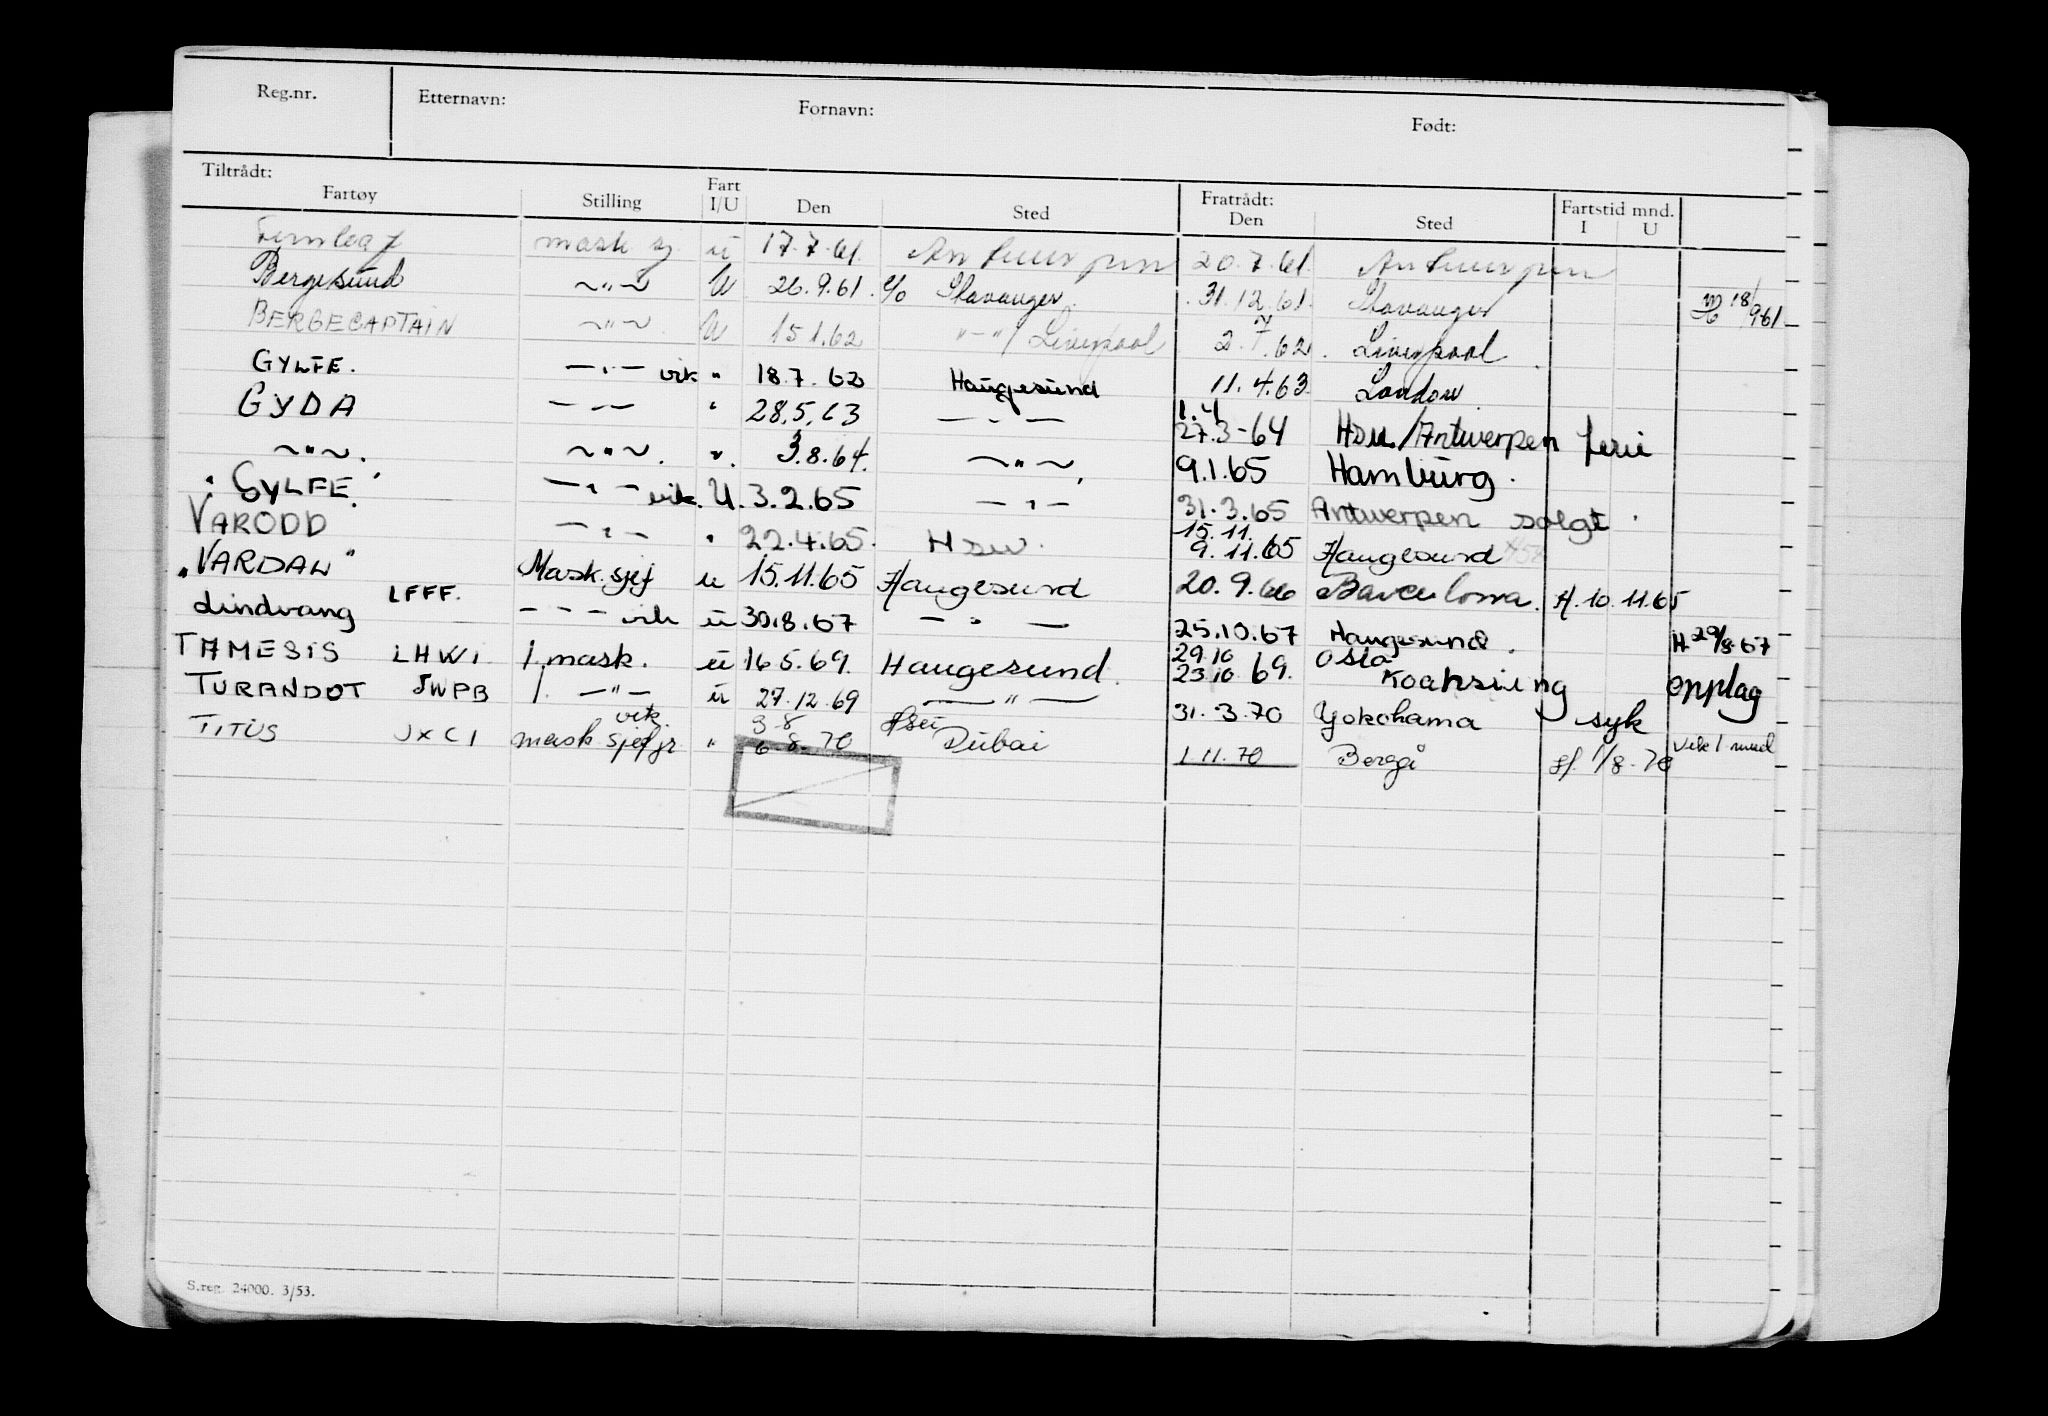 Reg.nr. Etternavn: Fornavn: Født:
Tiltrådt: Fratrådt: Fartstid mnd.
Fartøy Stilling Fart I/U Den Sted Den Sted I U
mask sj. u 17.7.61. Antwerpen 20.7.61. Antwerpen
Bergesund ~"~ U 26.9.61. c/o Stavanger. 31.12.61. Stavanger 18/9 61
BERGECAPTAIN ~"~ U 15.1.62 "-"/ Liverpool 2.7.62. Liverpool
GYLFE. -"- vik " 18.7.62 Haugesund 11.4.63. London
GYDA -"- " 28.5.63 -"- 1.4 27.3-64 Hsu./Antwerpen ferie
~"~. ~"~. ". 3.8.64. ~"~. 9.1.65 Hamburg.
"GYLFE" -"- vik. U. 3.2.65 -"- 31.3.65 Antwerpen solgt.
VARODD -"- " 22.4.65. Hsu. 15.11. 9.11.65 Haugesund
"VARDAN" LFFF. Mask.sjef u 15.11.65 Haugesund 20.9.66 Barcelona. H. 10.11.65
Lindvang - - - vik u 30.8.67 - " - 25.10.67 Haugesund. H. 29/8.67
TAMESIS LHWI 1. mask. u 16.5.69. Haugesund. 29.10 23.10.69. Oslo Koahsiung opplag
TURANDOT JWPB 1. -"- u 27.12.69 -"- 31.3.70 Yokohama syk
TITUS JXCI mask sjef jr vik. " 3.8 6.8.70 Hsu Dubai 1.11.70 Bergå H. 1/8.70 Vik 1 mnd
S.reg. 24000. 3/53.